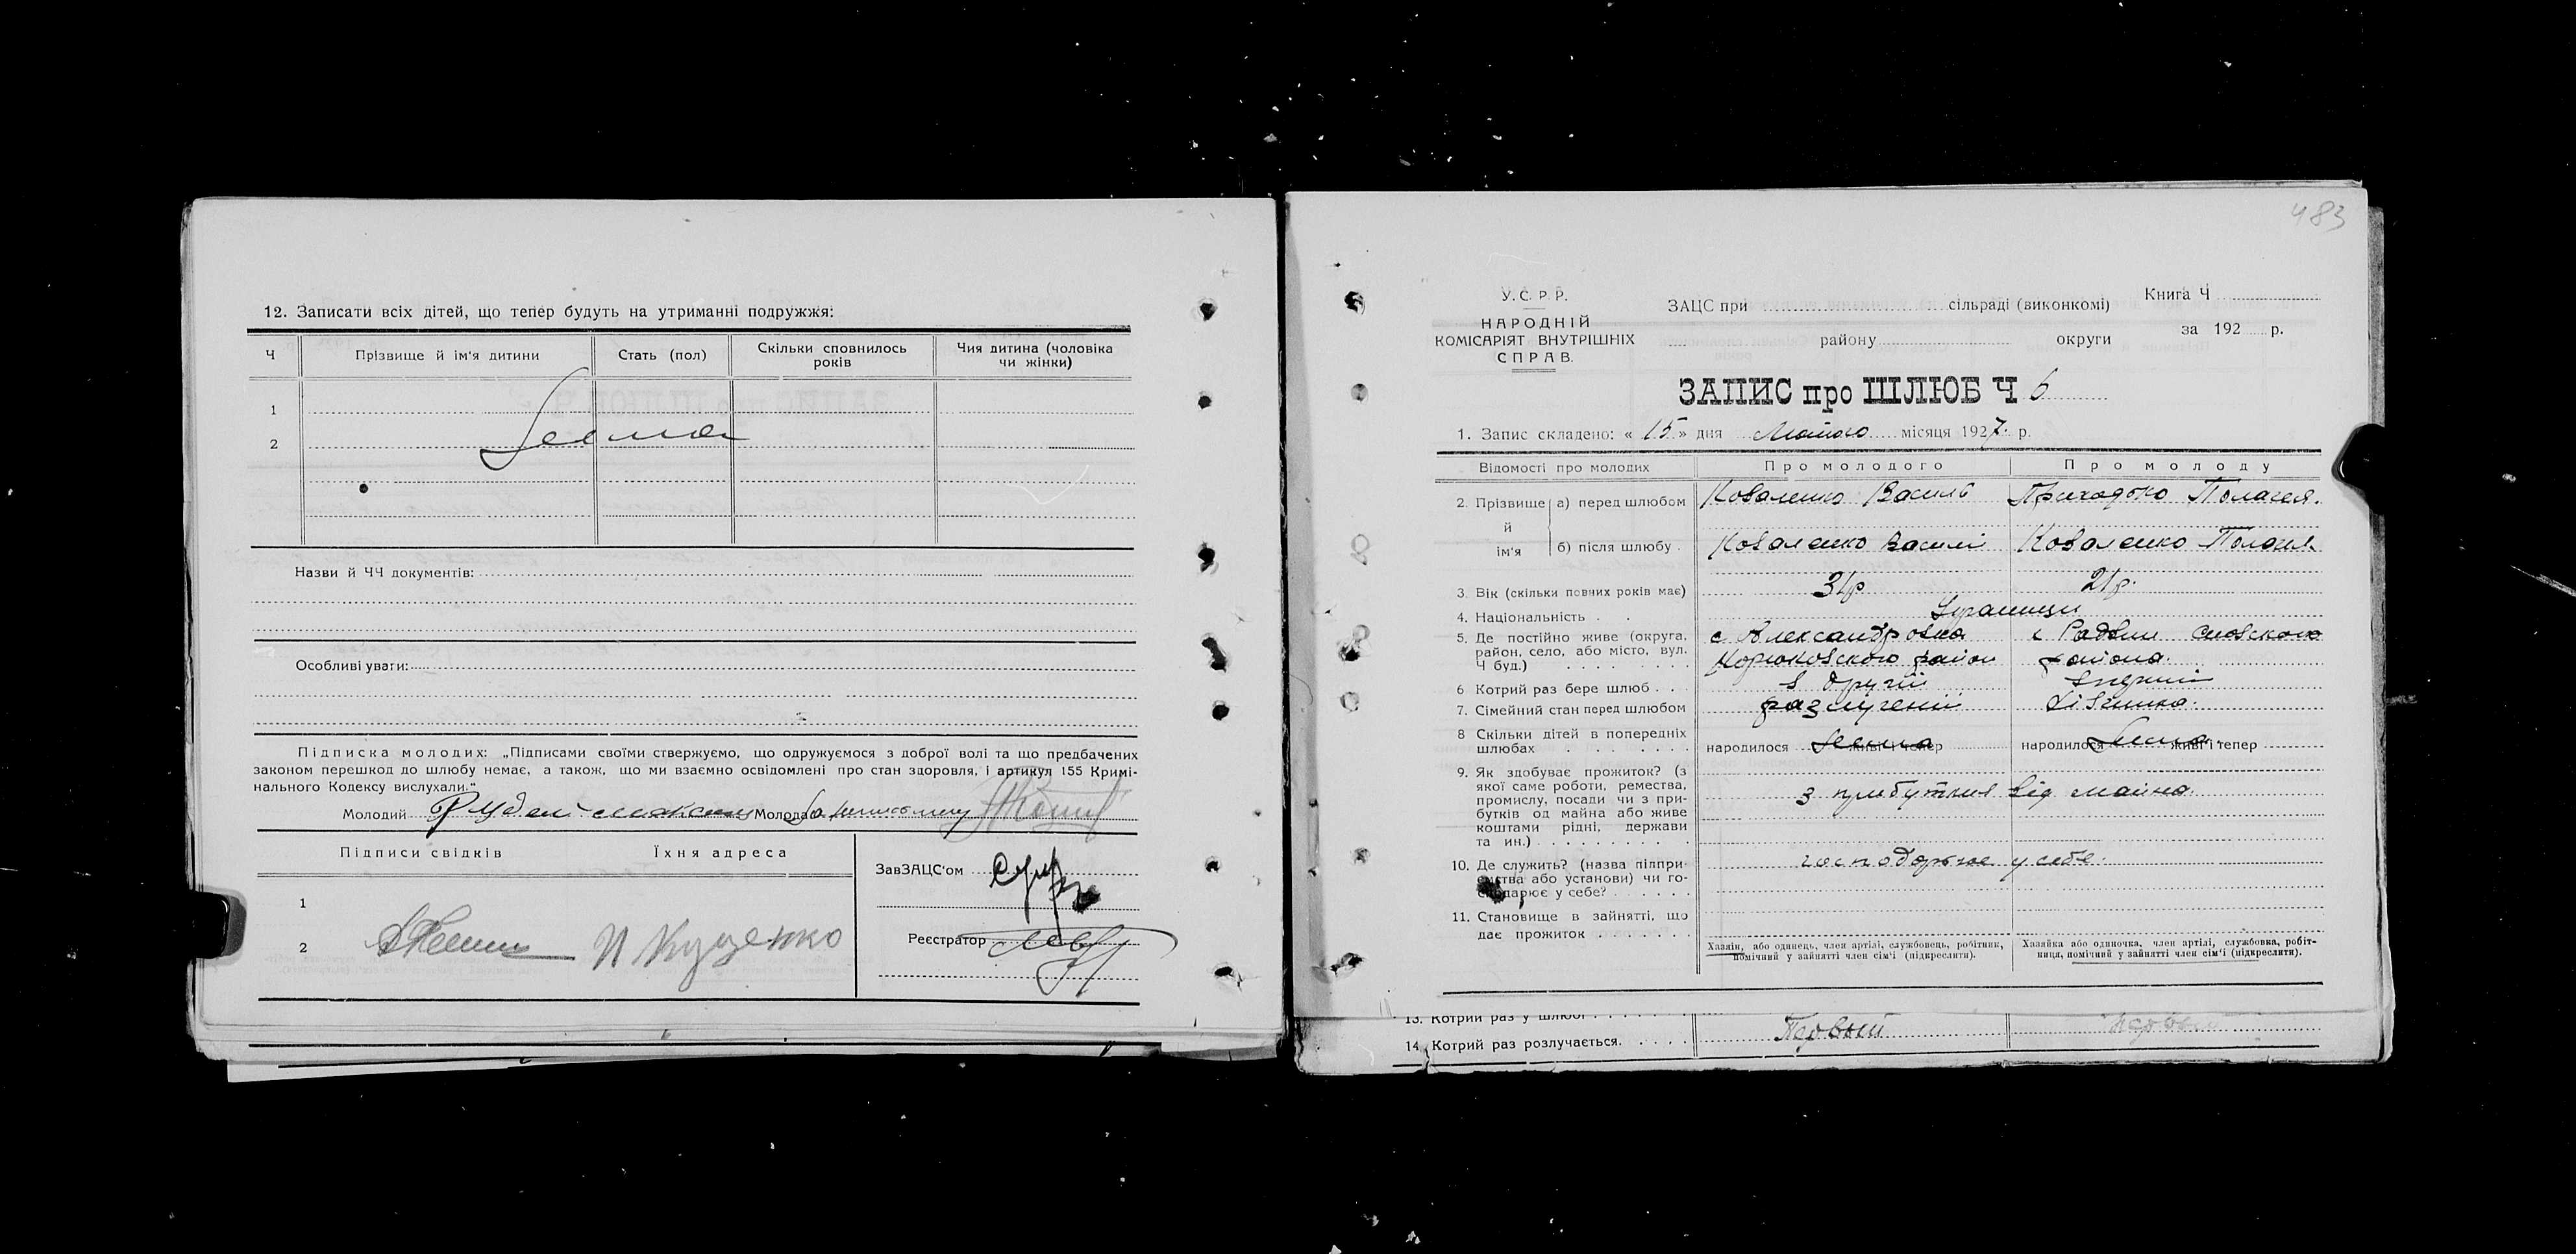 12. Записати всіх дітей, що тепер будуть на утриманні подружжя:
Ч Прізвище й ім'я дитини Стать (пол) Скільки сповнилось років Чия дитина (чоловіка чи жінки)
1
2
Назви й ЧЧ документів:
Особливі уваги:
Підписка молодих: „Підписами своїми ствержуємо, що одружуємося з доброї волі та що предбачених
законом перешкод до шлюбу немає, а також, що ми взаємно освідомлені про стан здоровля, і артикул 155 Кримі-
нального Кодексу вислухали."
Молодий Молода
Підписи свідків Їхня адреса
ЗавЗАЦС'ом
1
2 И Куценко
Реєстратор
483
У.С.Р.Р.
НАРОДНІЙ
КОМІСАРІЯТ ВНУТРІШНІХ
СПРАВ.
ЗАЦС при сільраді (виконкомі)
району округи
Книга Ч
за 192 р.
ЗАПИС про ШЛЮБ Ч 6
1. Запис складено: « 15 » дня місяця 1927 р.
Відомості про молодих Про молодого Про молоду
2. Прізвище й ім'я а) перед шлюбом Коваленко Василь Приходько
б) після шлюбу Коваленко Василь Коваленко
3. Вік (скільки повних років має) 31р 21р.
4. Національність Украинци
5. Де постійно живе (округа, с Александровка с
район, село, або місто, вул. Корюковского район района.
Ч буд.)
6 Котрий раз бере шлюб в другий
7. Сімейний стан перед шлюбом дівчина.
8 Скільки дітей в попередніх
шлюбах народилося живі тепер народилося живі тепер
9. Як здобуває прожиток? (з
якої саме роботи, ремества,
промислу, посади чи з при- з прибутків від майна.
бутків од майна або живе
коштами рідні, держави
та ин.)
10. Де служить? (назва підпри- у себе.
ємства або установи) чи го-
сподарює у себе?
11. Становище в зайнятті, що
дає прожиток
Хазяїн, або одинець, член артілі, службовець, робітник,
помічний у зайнятті член сім'ї (підкреслити).
Хазяйка або одиночка, член артілі, службовка, робіт-
ниця, помічний у зайнятті член сім'ї (підкреслити).
13. Котрий раз у шлюбі
14. Котрий раз розлучається. Первый